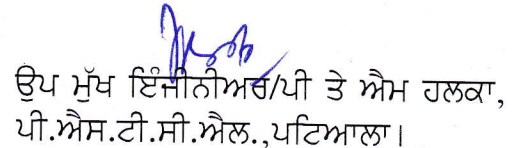 ਉਪ ਮੁੱਖ ਇੰਜੀਨੀਅਰ/ਪੀ ਤੇ ਐਮ ਹਲਕਾ,
ਪੀ.ਐਸ.ਟੀ.ਸੀ.ਐਲ.,ਪਟਿਆਲਾ।